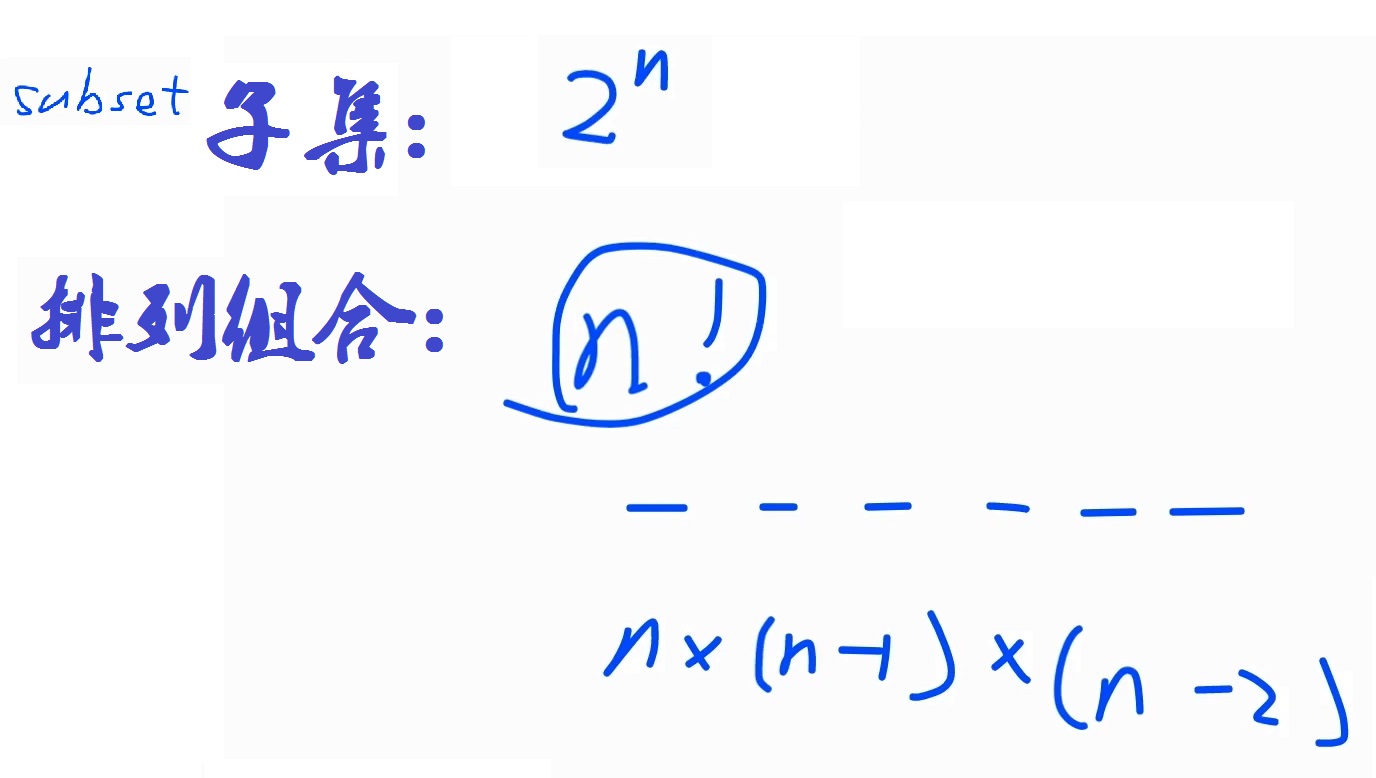 subset 子集: 2^n
排列组合: n!
_ _ _ _ _ _
n × (n-1) × (n-2)